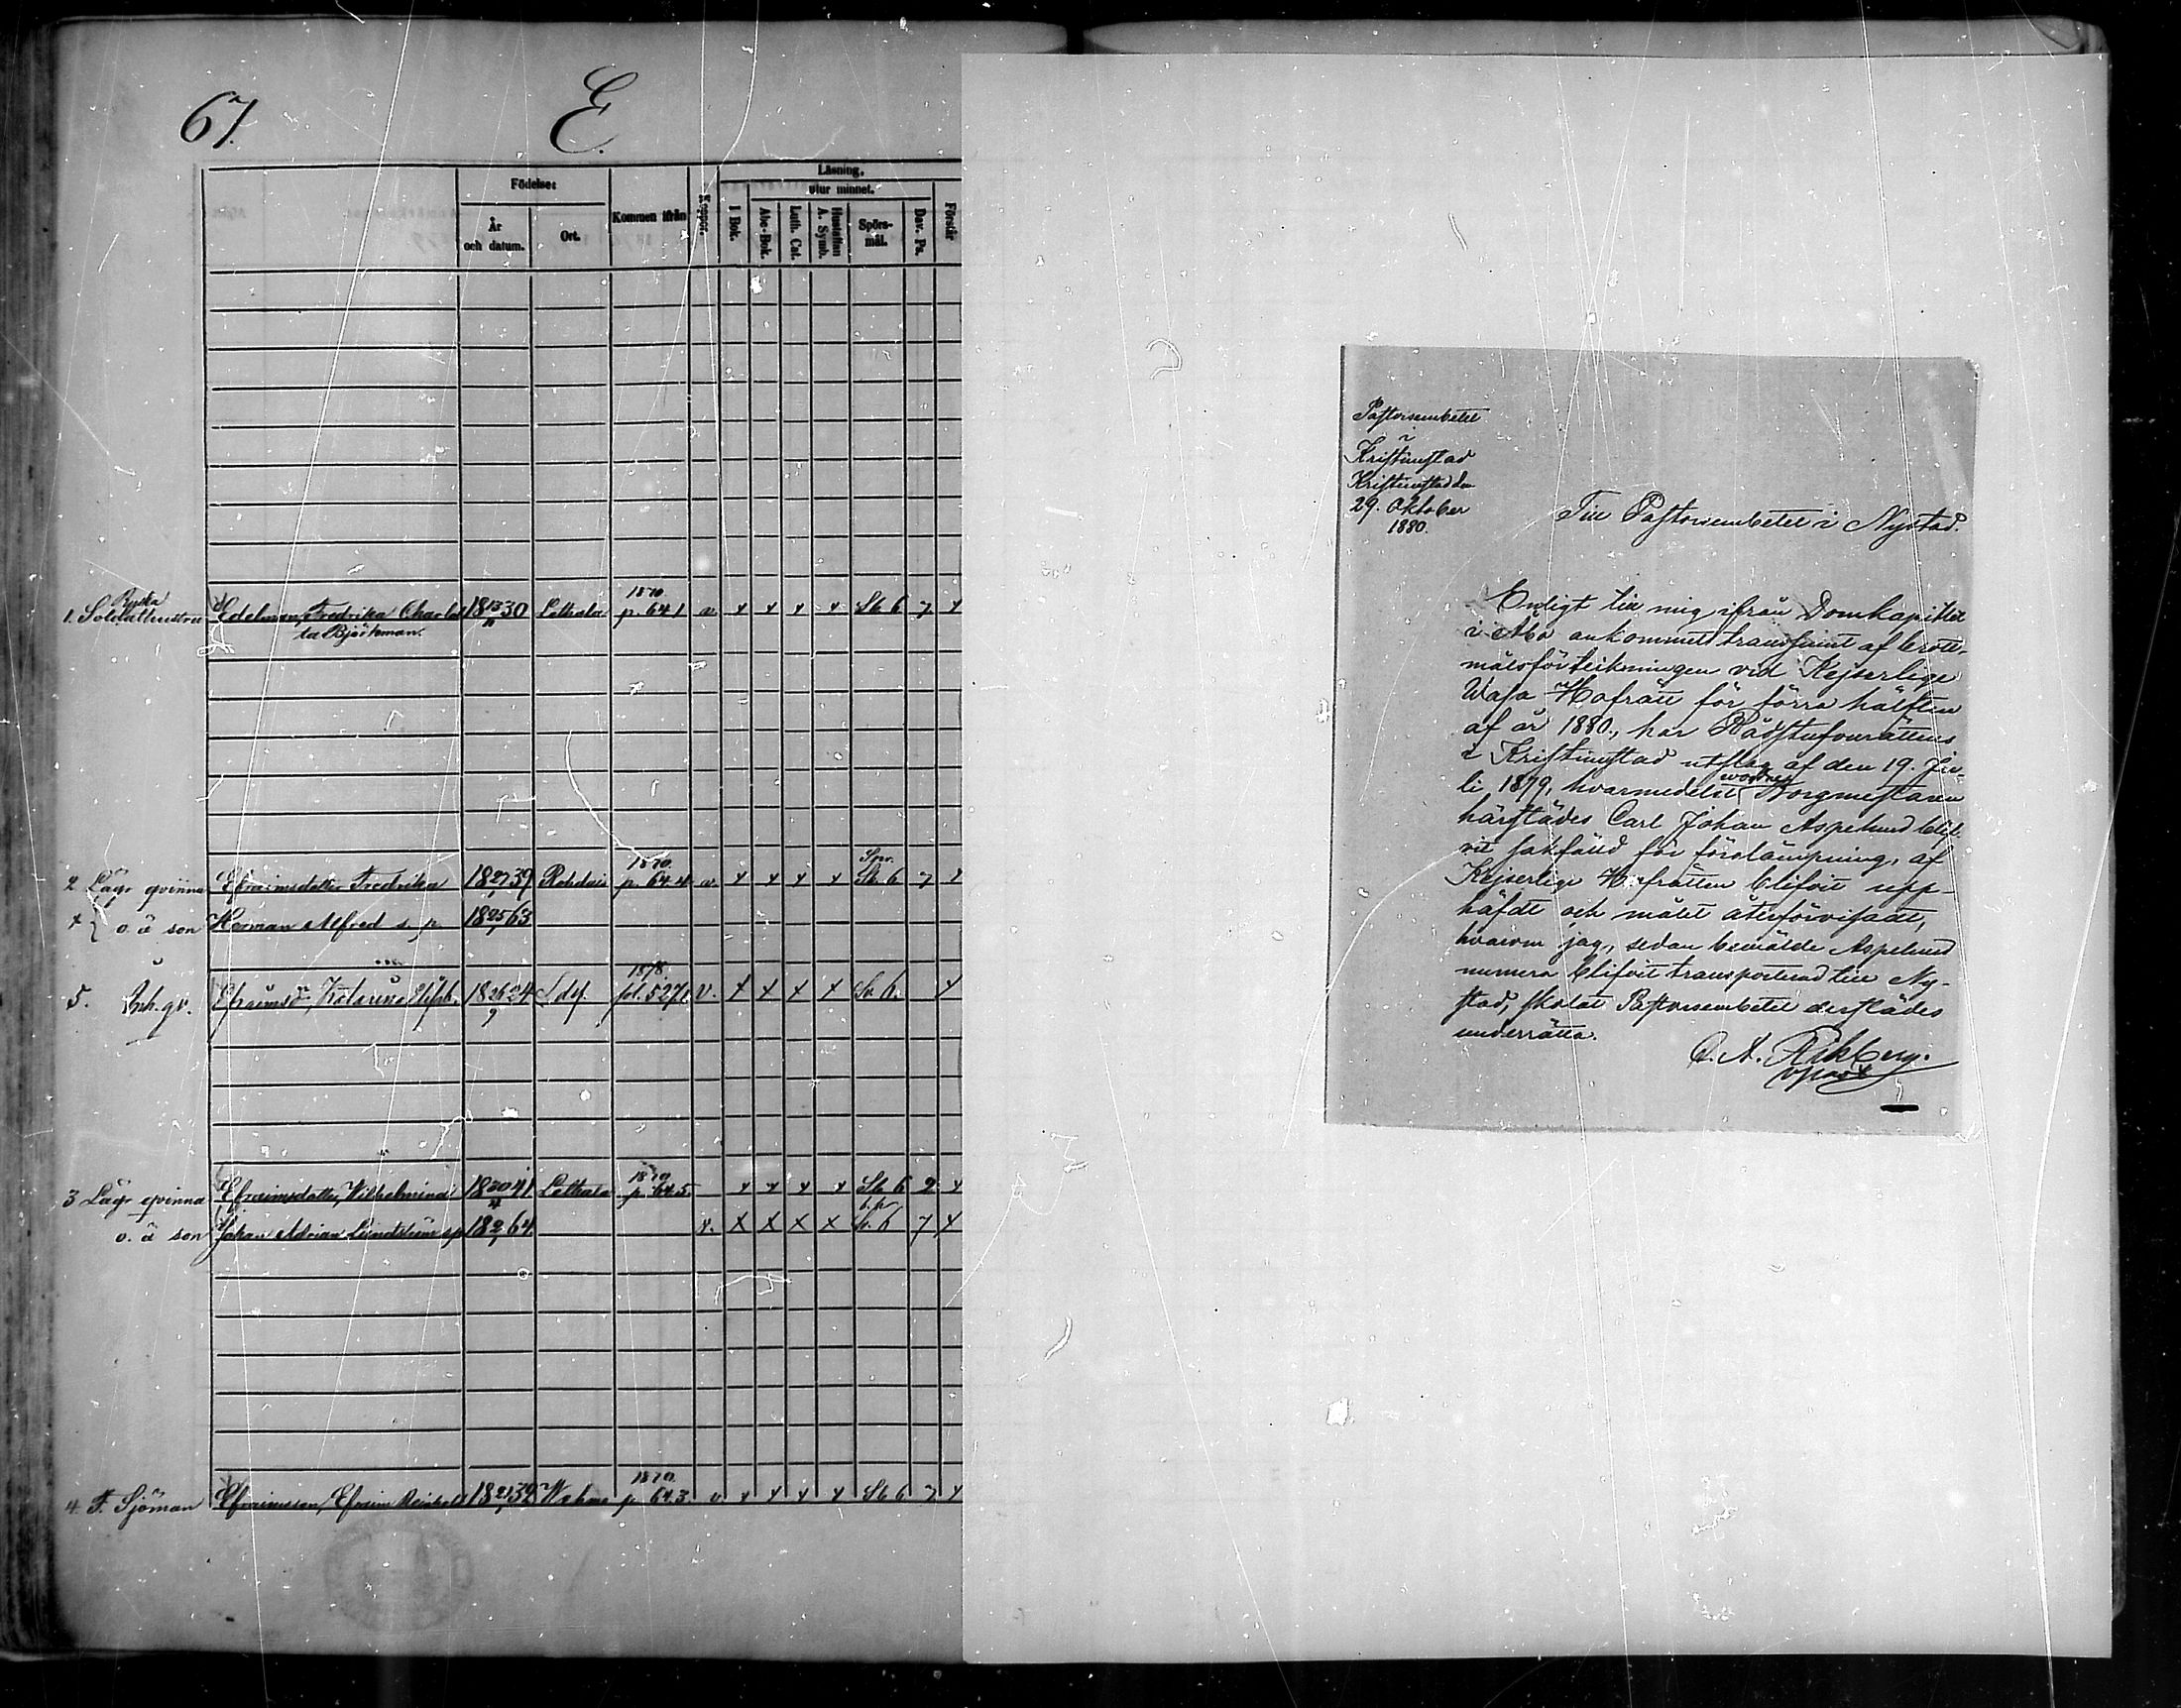 67.
E.
Födelse:
Kommen ifrån
Koppor.
Läsning.
År
och datum.
Ort.
I Bok.
utur minnet.
Förstår
Abc-Bok.
Luth. Cat.
Hustaflan
A. Symb.
Spörs-
mål.
Dav. Ps.
Ryska
1. Soldathustru Edelman, Fredrika Charlot 18 30 Letala 1870 p. 641 v. x x x x St 6 7 x
ta Björkman.
2 Lägr qvinna Efraimsdotter Fredrika 18 27/1 39 Rohdais 1870. p. 644 v. x x x x Sv. St. 6 7
o. ä son Herman Alfred s. p. 18 25 63
5. Inh. qv. Efraimsdr Katarina Elisab. 18 26/9 24 Ldsf. 1878. fol. 527. v. x x x x Sv. 6. x
3 Lägr qvinna Efraimsdotter, Wilhelmina 18 30 41 Letala 1870 p. 645. x x x x St 6 2 x
o. ä son Johan Adrian Lindström sp 18 2 64. v. x x x x Sv. 6 7 x
4. F. Sjöman Efraimsson, Efraim Reinhold 18 21 39 1870. p. 643. v x x x x St 6 7 x
Pastorsembetet
i
Kristinestad
Kristinestad den
29. Oktober
1880.
Till Pastorsembetet i Nystad.
Enligt till mig ifrån Domkapitlet
i Åbo ankommet transsumt af brott-
målsförteckningen vid Kejserliga
Wasa Hofrätt för förra hälften
af år 1880, har Rådstufvurättens
i Kristinestad utslag af den 19. Ju-
li 1879, hvarmedelst Borgmästaren
härstädes Carl Johan Aspelund blif-
vit sakfälld för förolämpning, af
Kejserliga Hofrätten blifvit upp-
häfdt och målet återförvisadt,
hvarom jag, sedan bemälde Aspelund
numera blifvit transporterad till Ny-
stad, skolat Pastorsembetet derstädes
underrätta.